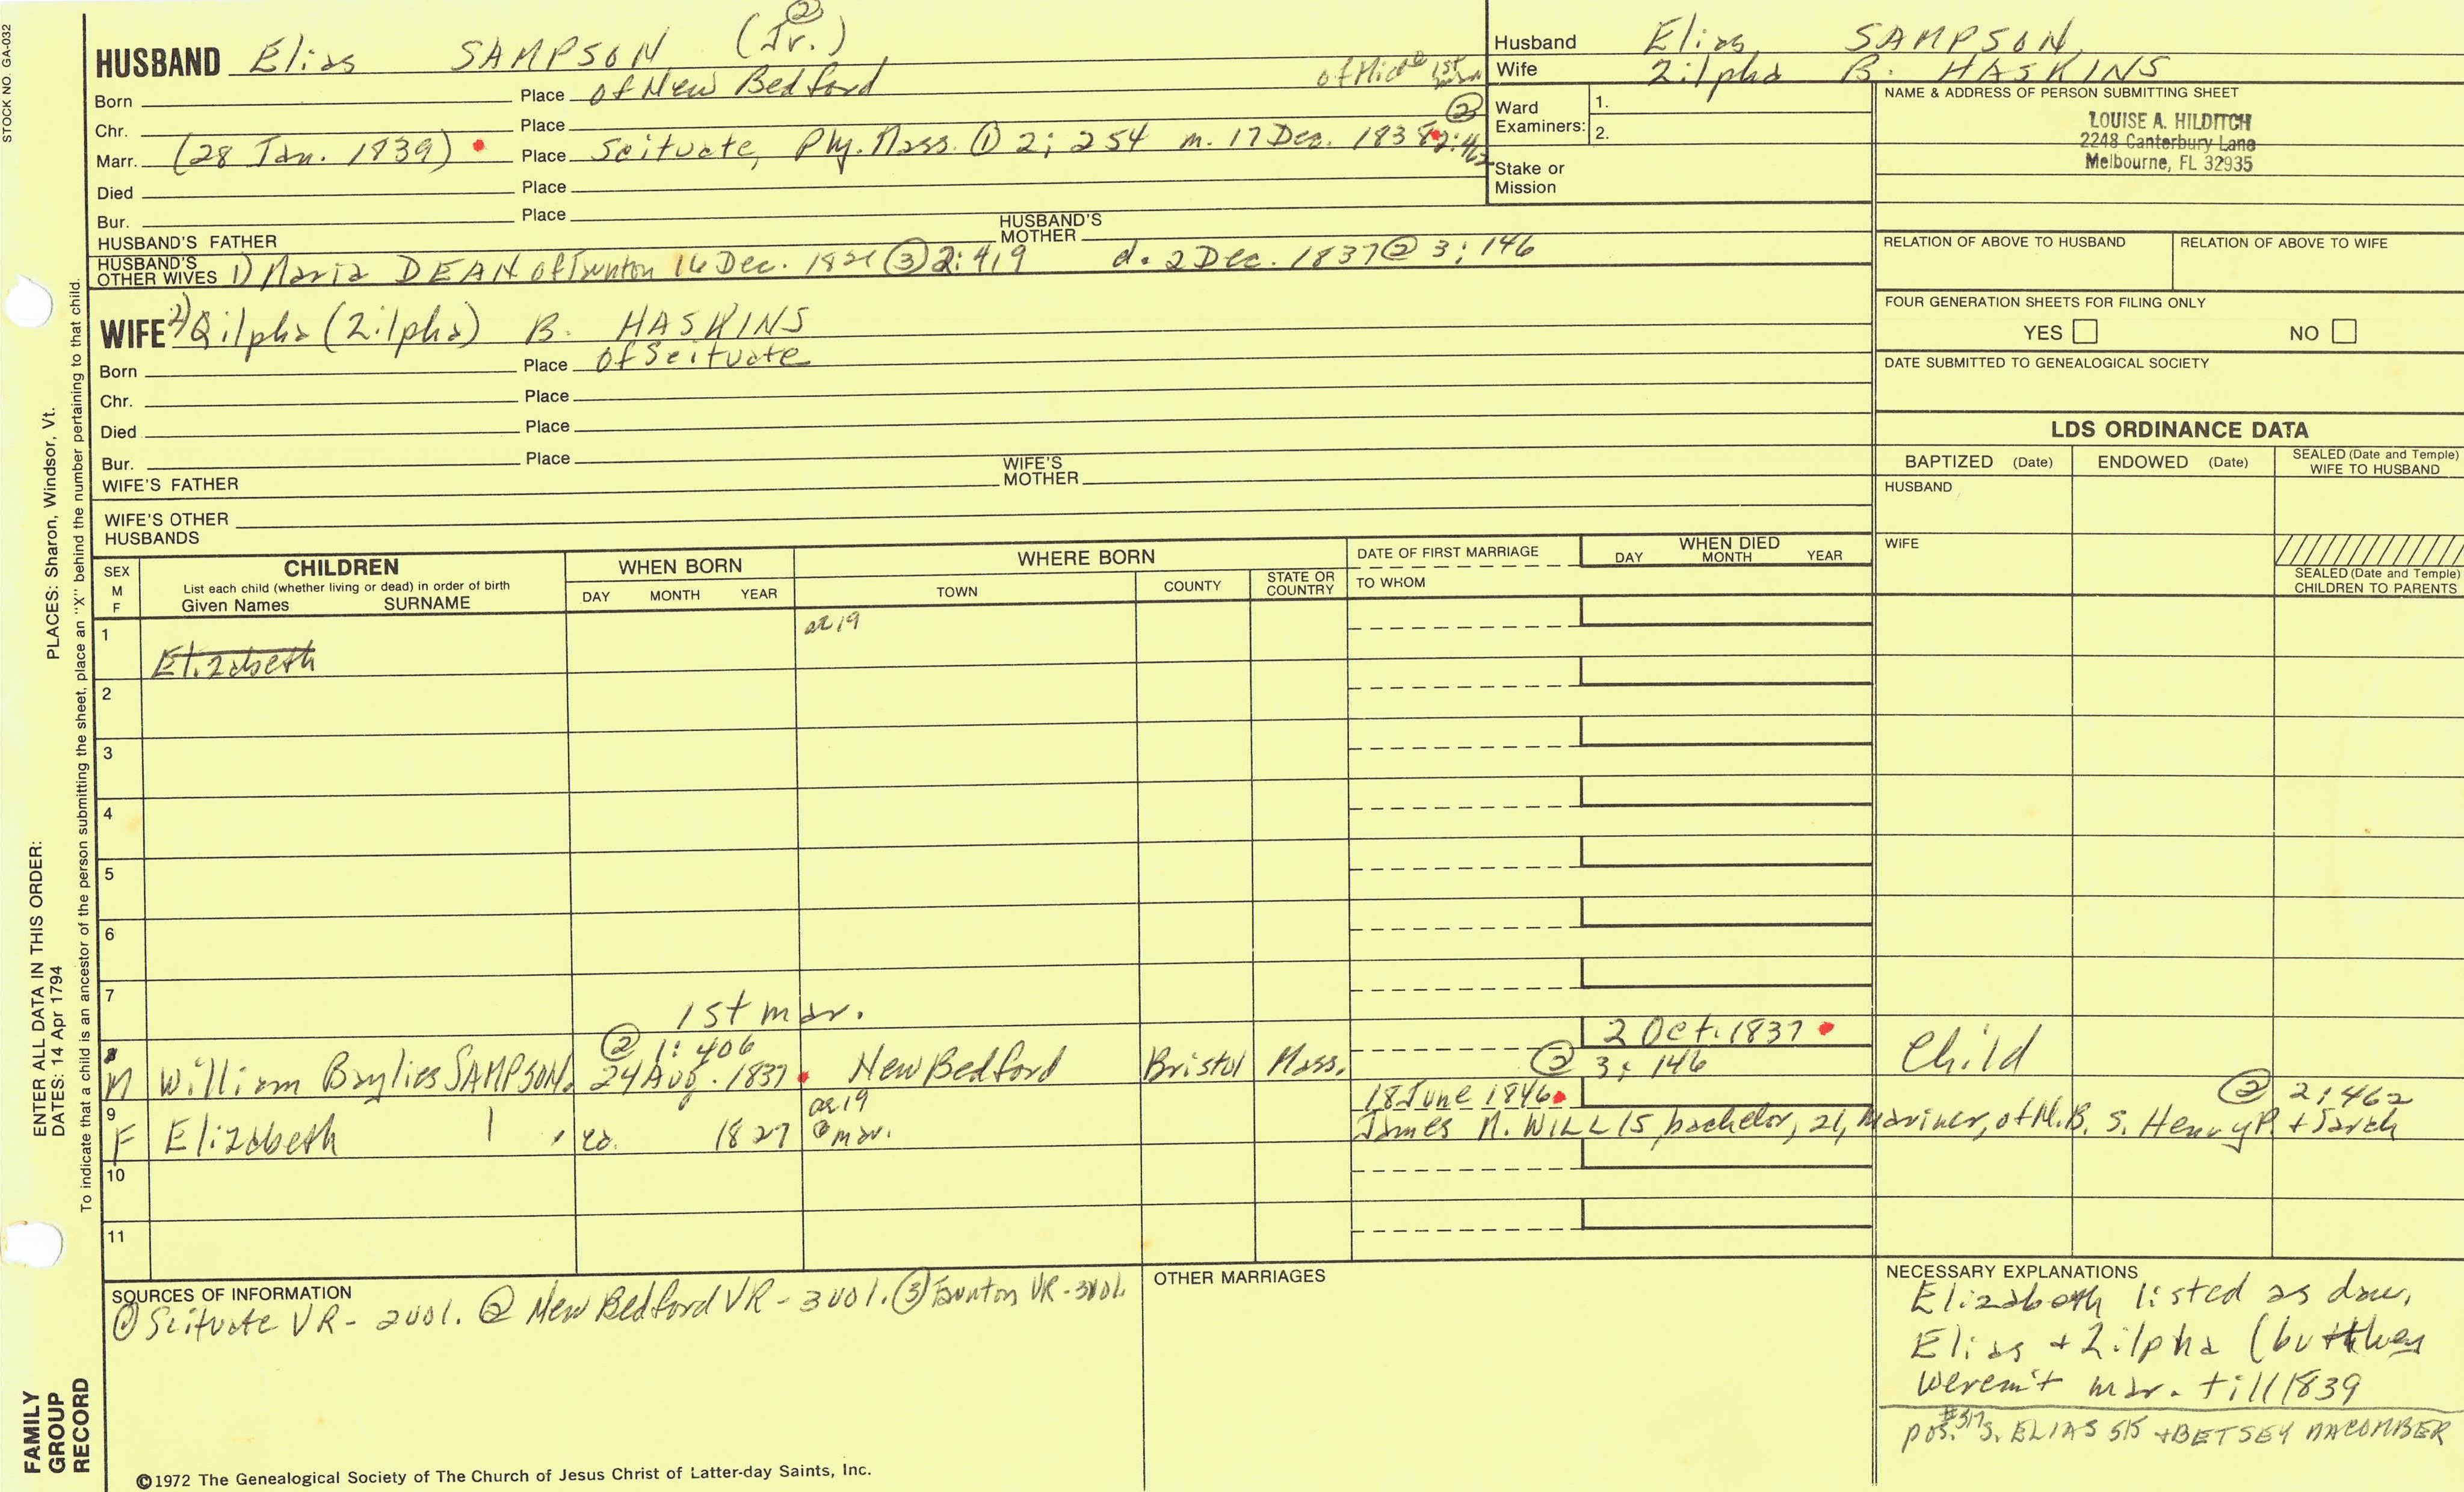 STOCK NO. GA-032
②
HUSBAND Elias SAMPSON (Jr.)
Born Place of New Bedford
Chr. Place
Marr. (28 Jan. 1839) Place Scituate, Ply. Mass. ① 2; 254 m. 17 Dec. 1838 ② 2:462
Died Place
Bur. Place
HUSBAND'S FATHER HUSBAND'S MOTHER
HUSBAND'S OTHER WIVES 1) Maria DEAN of Taunton 16 Dec. 1821 ③ 2:419 d. 2 Dec. 1837 ② 3; 146
WIFE 2) Qilpha (Zilpha) B. HASKINS
Born Place of Scituate
Chr. Place
Died Place
Bur. Place
WIFE'S FATHER WIFE'S MOTHER
WIFE'S OTHER HUSBANDS
Husband Elias SAMPSON
Wife Zilpha B. HASKINS
Ward Examiners: 1.
2.
Stake or Mission
NAME & ADDRESS OF PERSON SUBMITTING SHEET
LOUISE A. HILDITCH
2248 Canterbury Lane
Melbourne, FL 32935
RELATION OF ABOVE TO HUSBAND RELATION OF ABOVE TO WIFE
FOUR GENERATION SHEETS FOR FILING ONLY
YES NO
DATE SUBMITTED TO GENEALOGICAL SOCIETY
LDS ORDINANCE DATA
BAPTIZED (Date) ENDOWED (Date) SEALED (Date and Temple) WIFE TO HUSBAND
HUSBAND
WIFE
SEALED (Date and Temple) CHILDREN TO PARENTS
SEX M F
CHILDREN
List each child (whether living or dead) in order of birth
Given Names SURNAME
WHEN BORN
DAY MONTH YEAR
WHERE BORN
TOWN COUNTY STATE OR COUNTRY
DATE OF FIRST MARRIAGE
TO WHOM
WHEN DIED
DAY MONTH YEAR
1 Elizabeth ae 19
2
3
4
5
6
7
1st mar.
8 M William Baylies SAMPSON ② 1: 406 24 Aug. 1837 New Bedford Bristol Mass. 2 Oct. 1837 ② 3: 146 Child
9 F Elizabeth ca. 1827 ae 19 @ mar. 18 June 1846 ② 2; 462
James N. WILLIS, bachelor, 21, Mariner, of N.B. s. Henry P. + Sarah
10
11
SOURCES OF INFORMATION
① Scituate VR - 2 vol. ② New Bedford VR - 3 vol. ③ Taunton VR - 3 vol.
OTHER MARRIAGES
NECESSARY EXPLANATIONS
Elizabeth listed as dau.
Elias + Zilpha (but they
weren't mar. till 1839
pos. #317 s. ELIAS SR + BETSEY MACOMBER
©1972 The Genealogical Society of The Church of Jesus Christ of Latter-day Saints, Inc.
FAMILY GROUP RECORD
ENTER ALL DATA IN THIS ORDER:
DATES: 14 Apr 1794
PLACES: Sharon, Windsor, Vt.
To indicate that a child is an ancestor of the person submitting the sheet, place an "X" behind the number pertaining to that child.